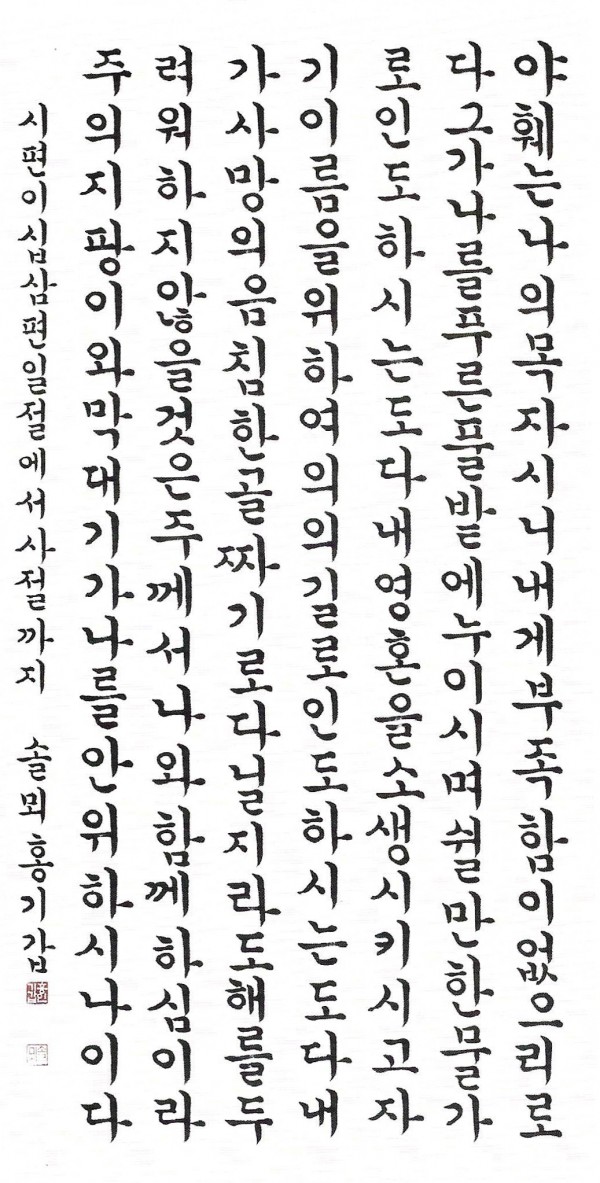 야훼는나의목자시니내게부족함이없으리로
다그가나를푸른풀밭에누이시며쉴만한물가
로인도하시는도다내영혼을소생시키시고자
기이름을위하여의의길로인도하시는도다내
가사망의음침한골짜기로다닐지라도해를두
려워하지않을것은주께서나와함께하심이라
주의지팡이와막대기가나를안위하시나이다
시편이십삼편일절에서사절까지 솔뫼홍기갑